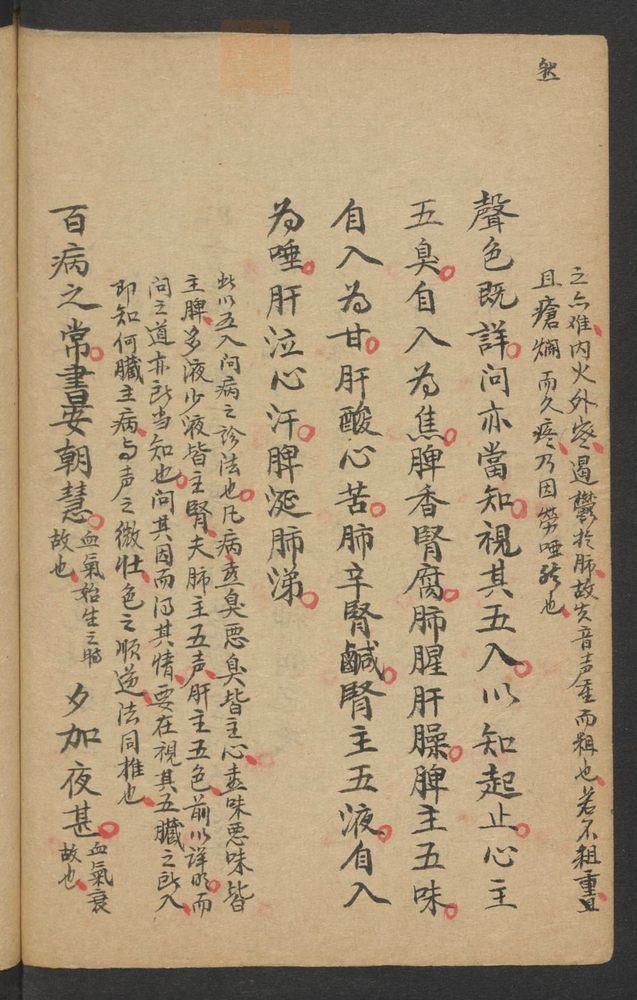 㸃
之六准内火外寒遏鬱於肺故失音声重而粗也若不粗重且
且瘡爛而久疼乃因勞唖改也
聲色既詳問亦當知視其五入以知起止心主
五臭自入为焦脾香腎腐肺腥肝臊脾主五味
自入为甘肝酸心苦肺辛腎鹹腎主五液自入
为唾肝泣心汗脾涎肺涕
此以五入问病之診法也凡病喜臭恶臭皆主心喜味恶味皆
主脾多液少液皆主腎夫肺主五声肝主五色前以詳明而
问之道亦所當知也问其因而得其情要在視其五臟之所入
即知何臟主病与声之微壯色之順逆法同推也
百病之常晝安朝慧血氣始生之時故也夕加夜甚血氣衰故也